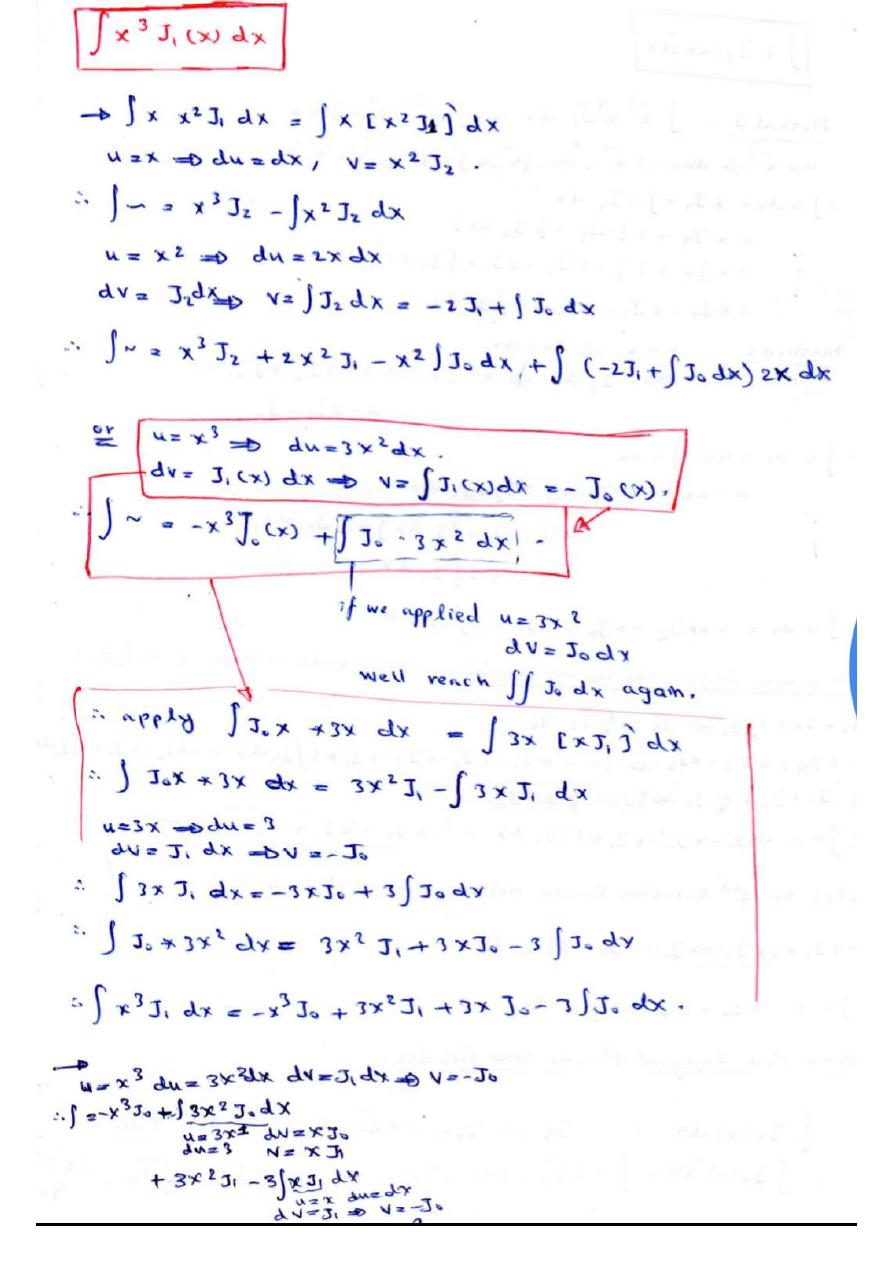 ∫ x³ J₁(x) dx
→ ∫ x x² J₁ dx = ∫ x [x² J₁] dx
u = x ⇒ du = dx, v = x² J₂.
∴ ∫~ = x³ J₂ - ∫ x² J₂ dx
u = x² ⇒ du = 2x dx
dv = J₂dx ⇒ v = ∫ J₂ dx = -2J₁ + ∫ J₀ dx
∴ ∫~ = x³ J₂ + 2x² J₁ - x² ∫ J₀ dx + ∫ (-2J₁ + ∫ J₀ dx) 2x dx
or u = x³ ⇒ du = 3x² dx.
dv = J₁(x) dx ⇒ v = ∫ J₁(x) dx = - J₀(x).
∴ ∫~ = -x³ J₀(x) + ∫ J₀ · 3x² dx
if we applied u = 3x²
dv = J₀ dx
well reach ∫∫ J₀ dx again.
∴ apply ∫ J₀ x * 3x dx = ∫ 3x [x J₁] dx
∴ ∫ J₀x * 3x dx = 3x² J₁ - ∫ 3x J₁ dx
u = 3x ⇒ du = 3
dv = J₁ dx ⇒ v = -J₀
∴ ∫ 3x J₁ dx = -3x J₀ + 3 ∫ J₀ dx
∴ ∫ J₀ * 3x² dx = 3x² J₁ + 3x J₀ - 3 ∫ J₀ dx
∴ ∫ x³ J₁ dx = -x³ J₀ + 3x² J₁ + 3x J₀ - 3 ∫ J₀ dx.
→ u = x³ du = 3x² dx dv = J₁ dx ⇒ v = -J₀
∴ ∫ = -x³ J₀ + ∫ 3x² J₀ dx
u = 3x¹ dv = x J₀
du = 3 v = x J₁
+ 3x² J₁ - 3 ∫ x J₁ dx
u = x du = dx
dv = J₁ ⇒ v = -J₀